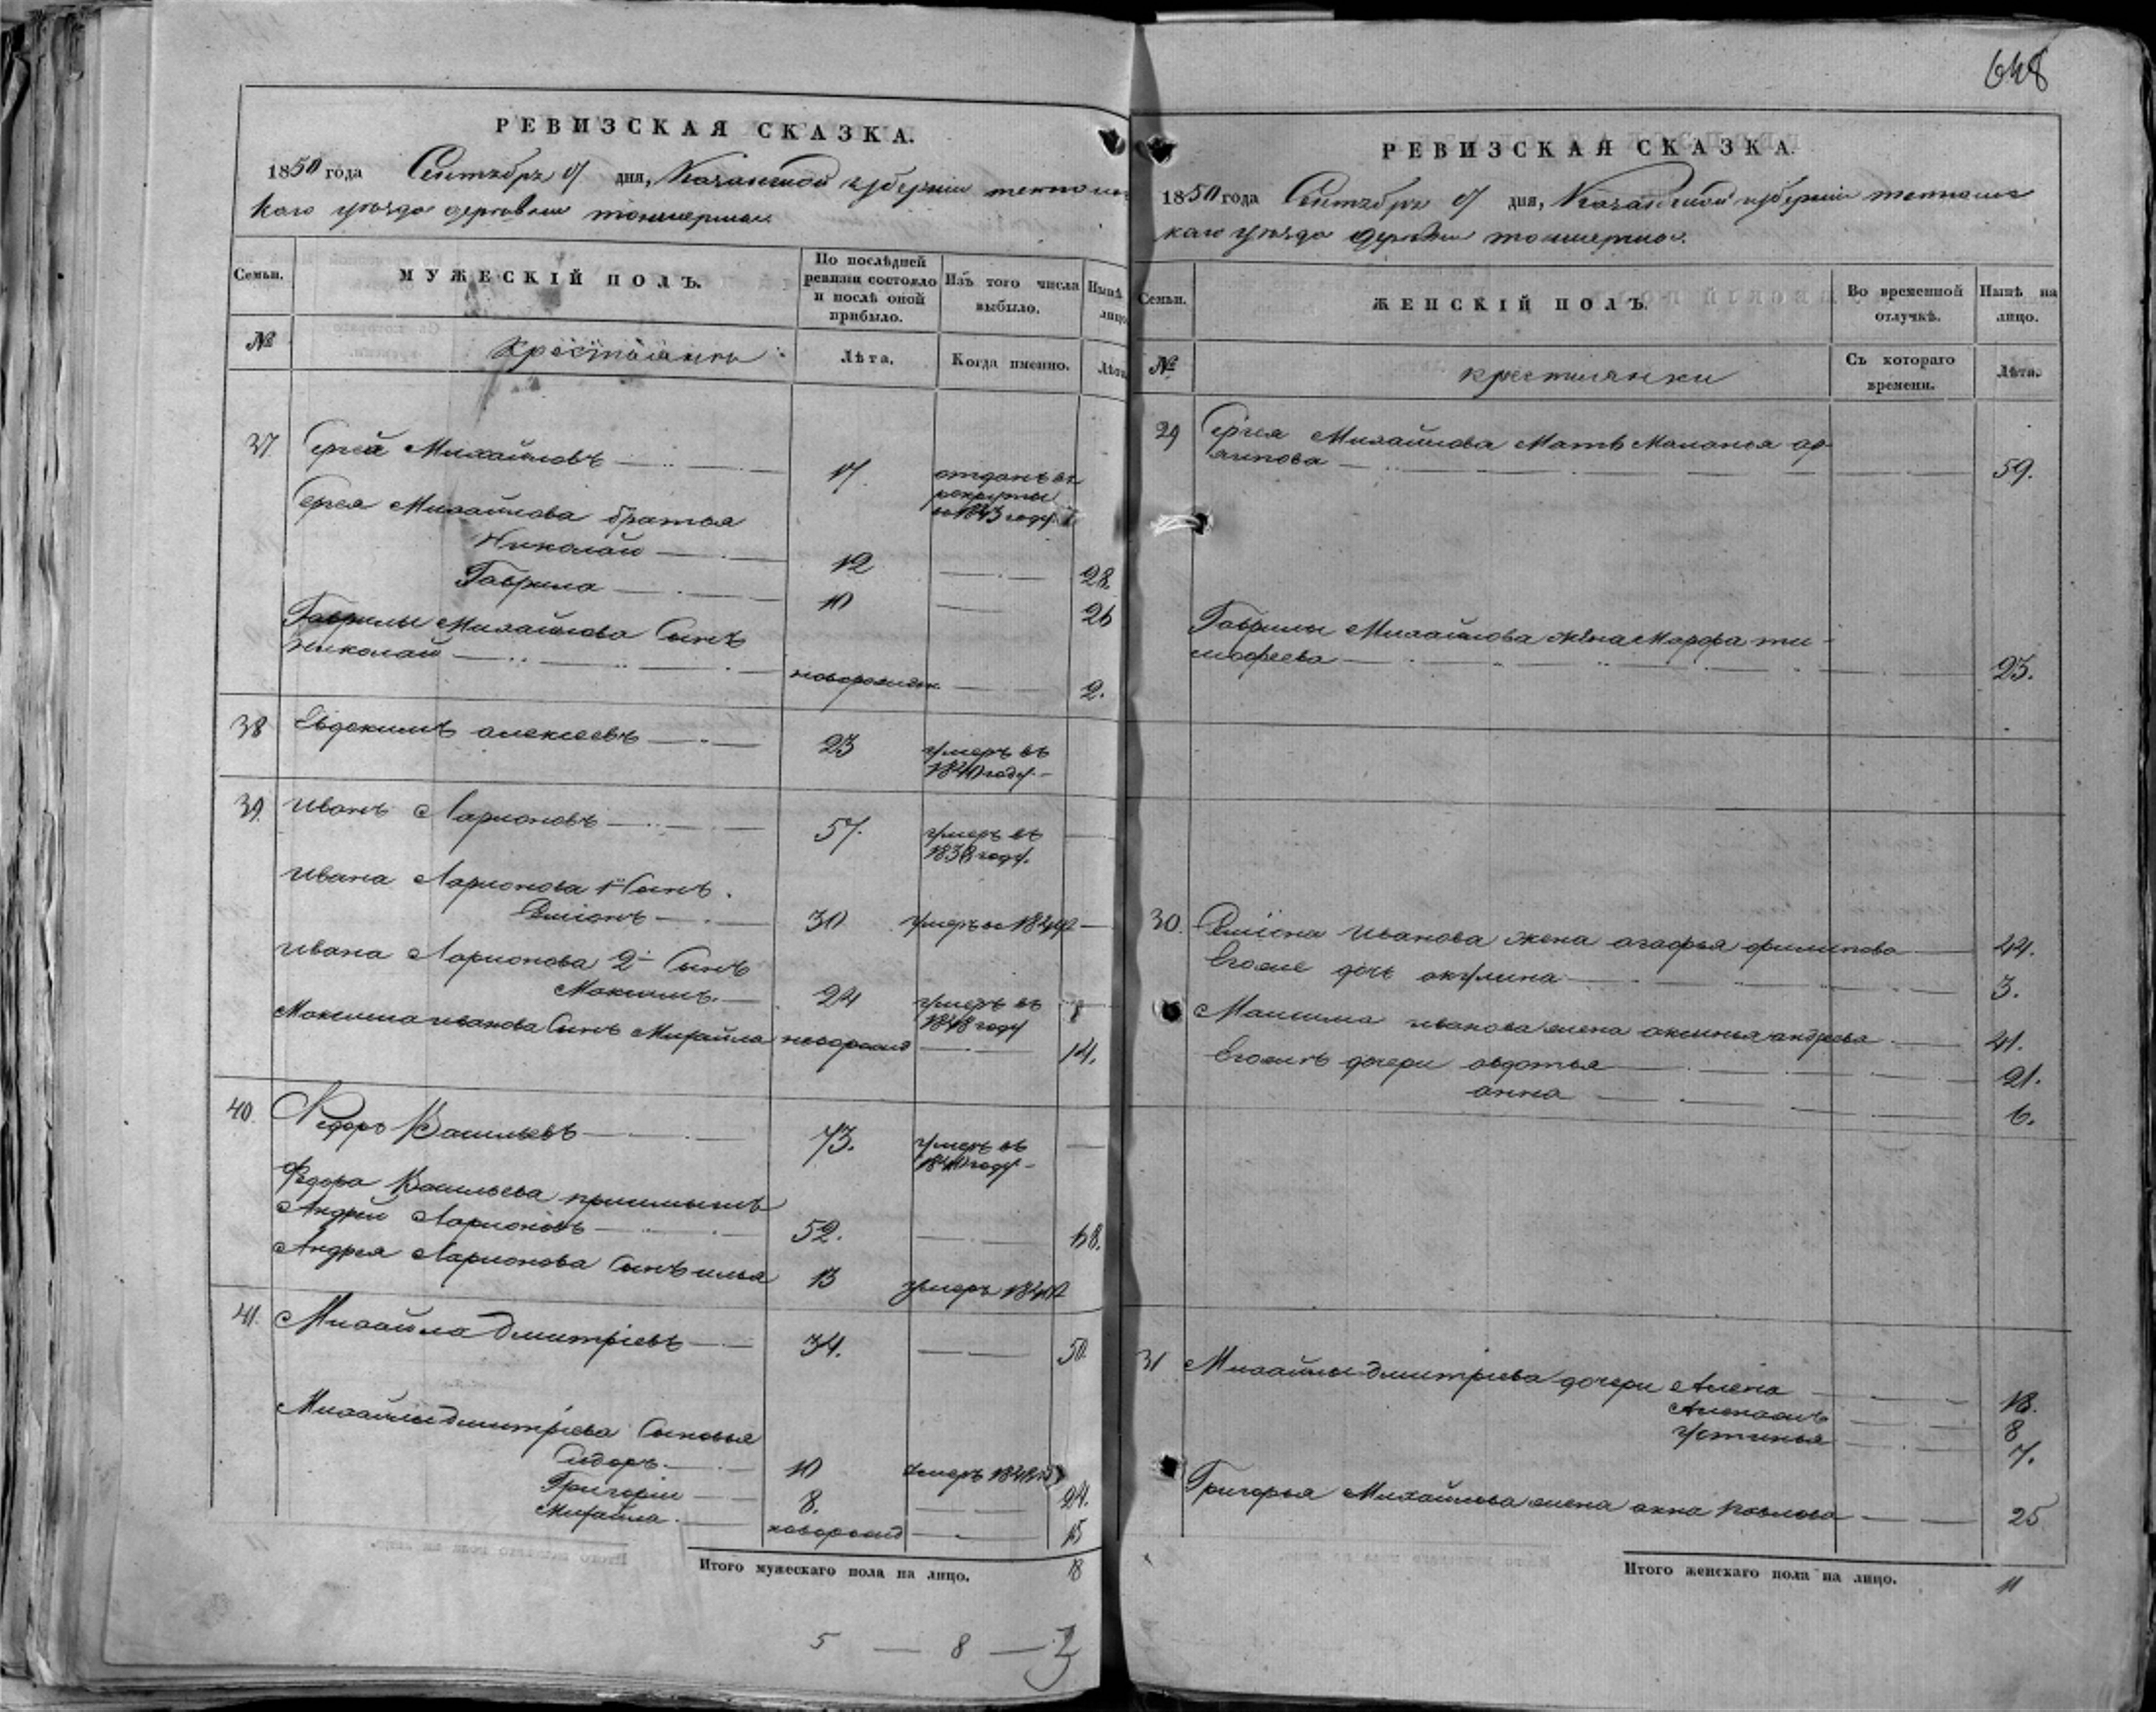 РЕВИЗСКАЯ СКАЗКА.
1850 года Сентября 7 дня, Казанской губернии
каго уезда деревни
Семьи. МУЖЕСКІЙ ПОЛЪ. По послѣдней ревизіи состояло и послѣ оной прибыло. Изъ того числа выбыло. Нынѣ лицо
№ Крестьяне Лѣта. Когда именно. Лѣта
37 Сергей Михайловъ 17. отданъ въ
рекруты
в 1843 году
Сергея Михайлова братья
Николай 12 28.
Гаврила 10 26
Гаврилы Михайлова Сынъ
Николай новорожден. 2.
38 Евдокимъ алексеевъ 23 умеръ въ
1840 году
39. иванъ Ларионовъ 57. умеръ въ
1838 году.
ивана Ларионова 1й Сынъ.
Семіонъ 30 умеръ в
ивана Ларионова 2й Сынъ
Максимъ. 24 умеръ въ
1848 году
Максима иванова Сынъ Михайла неворожд 14.
40. Федоръ Васильевъ 73. умеръ въ
1840 году
Федора Васильева приимышъ
Андрей Ларионовъ 52. 68.
Андрея Ларионова Сынъ илья 13 умеръ
41. Михайла Дмитріевъ 34. 50.
Михайлы дмитріева Сыновья
Сидоръ. 10 умеръ
Григории 8. 24.
Михайла. новорожд 15
Итого мужескаго пола на лицо. 8
5 — 8 — 3
648
РЕВИЗСКАЯ СКАЗКА.
1850 года Сентября 7 дня, Казанской губернии
каго уезда деревни
Семьи. ЖЕНСКІЙ ПОЛЪ. Во временной отлучкѣ. Нынѣ на лицо.
№ крестьянки Съ котораго времени. Лѣта.
29 Сергея Михайлова Мать Маланья ар
хипова 59.
Гаврилы Михайлова жена Марфа ти-
мофеева 23.
30. Семіона иванова жена агафья филипова 44.
Егоже дочь акулина 3.
Максима иванова жена аксинья андреева 41.
Егожъ дочери авдотья 21.
анна 6.
31 Михайлы дмитриева дочери Алена 18.
8
устинья 7.
Григорья Михайлова жена анна Павлова 25
Итого женскаго пола на лицо. 11